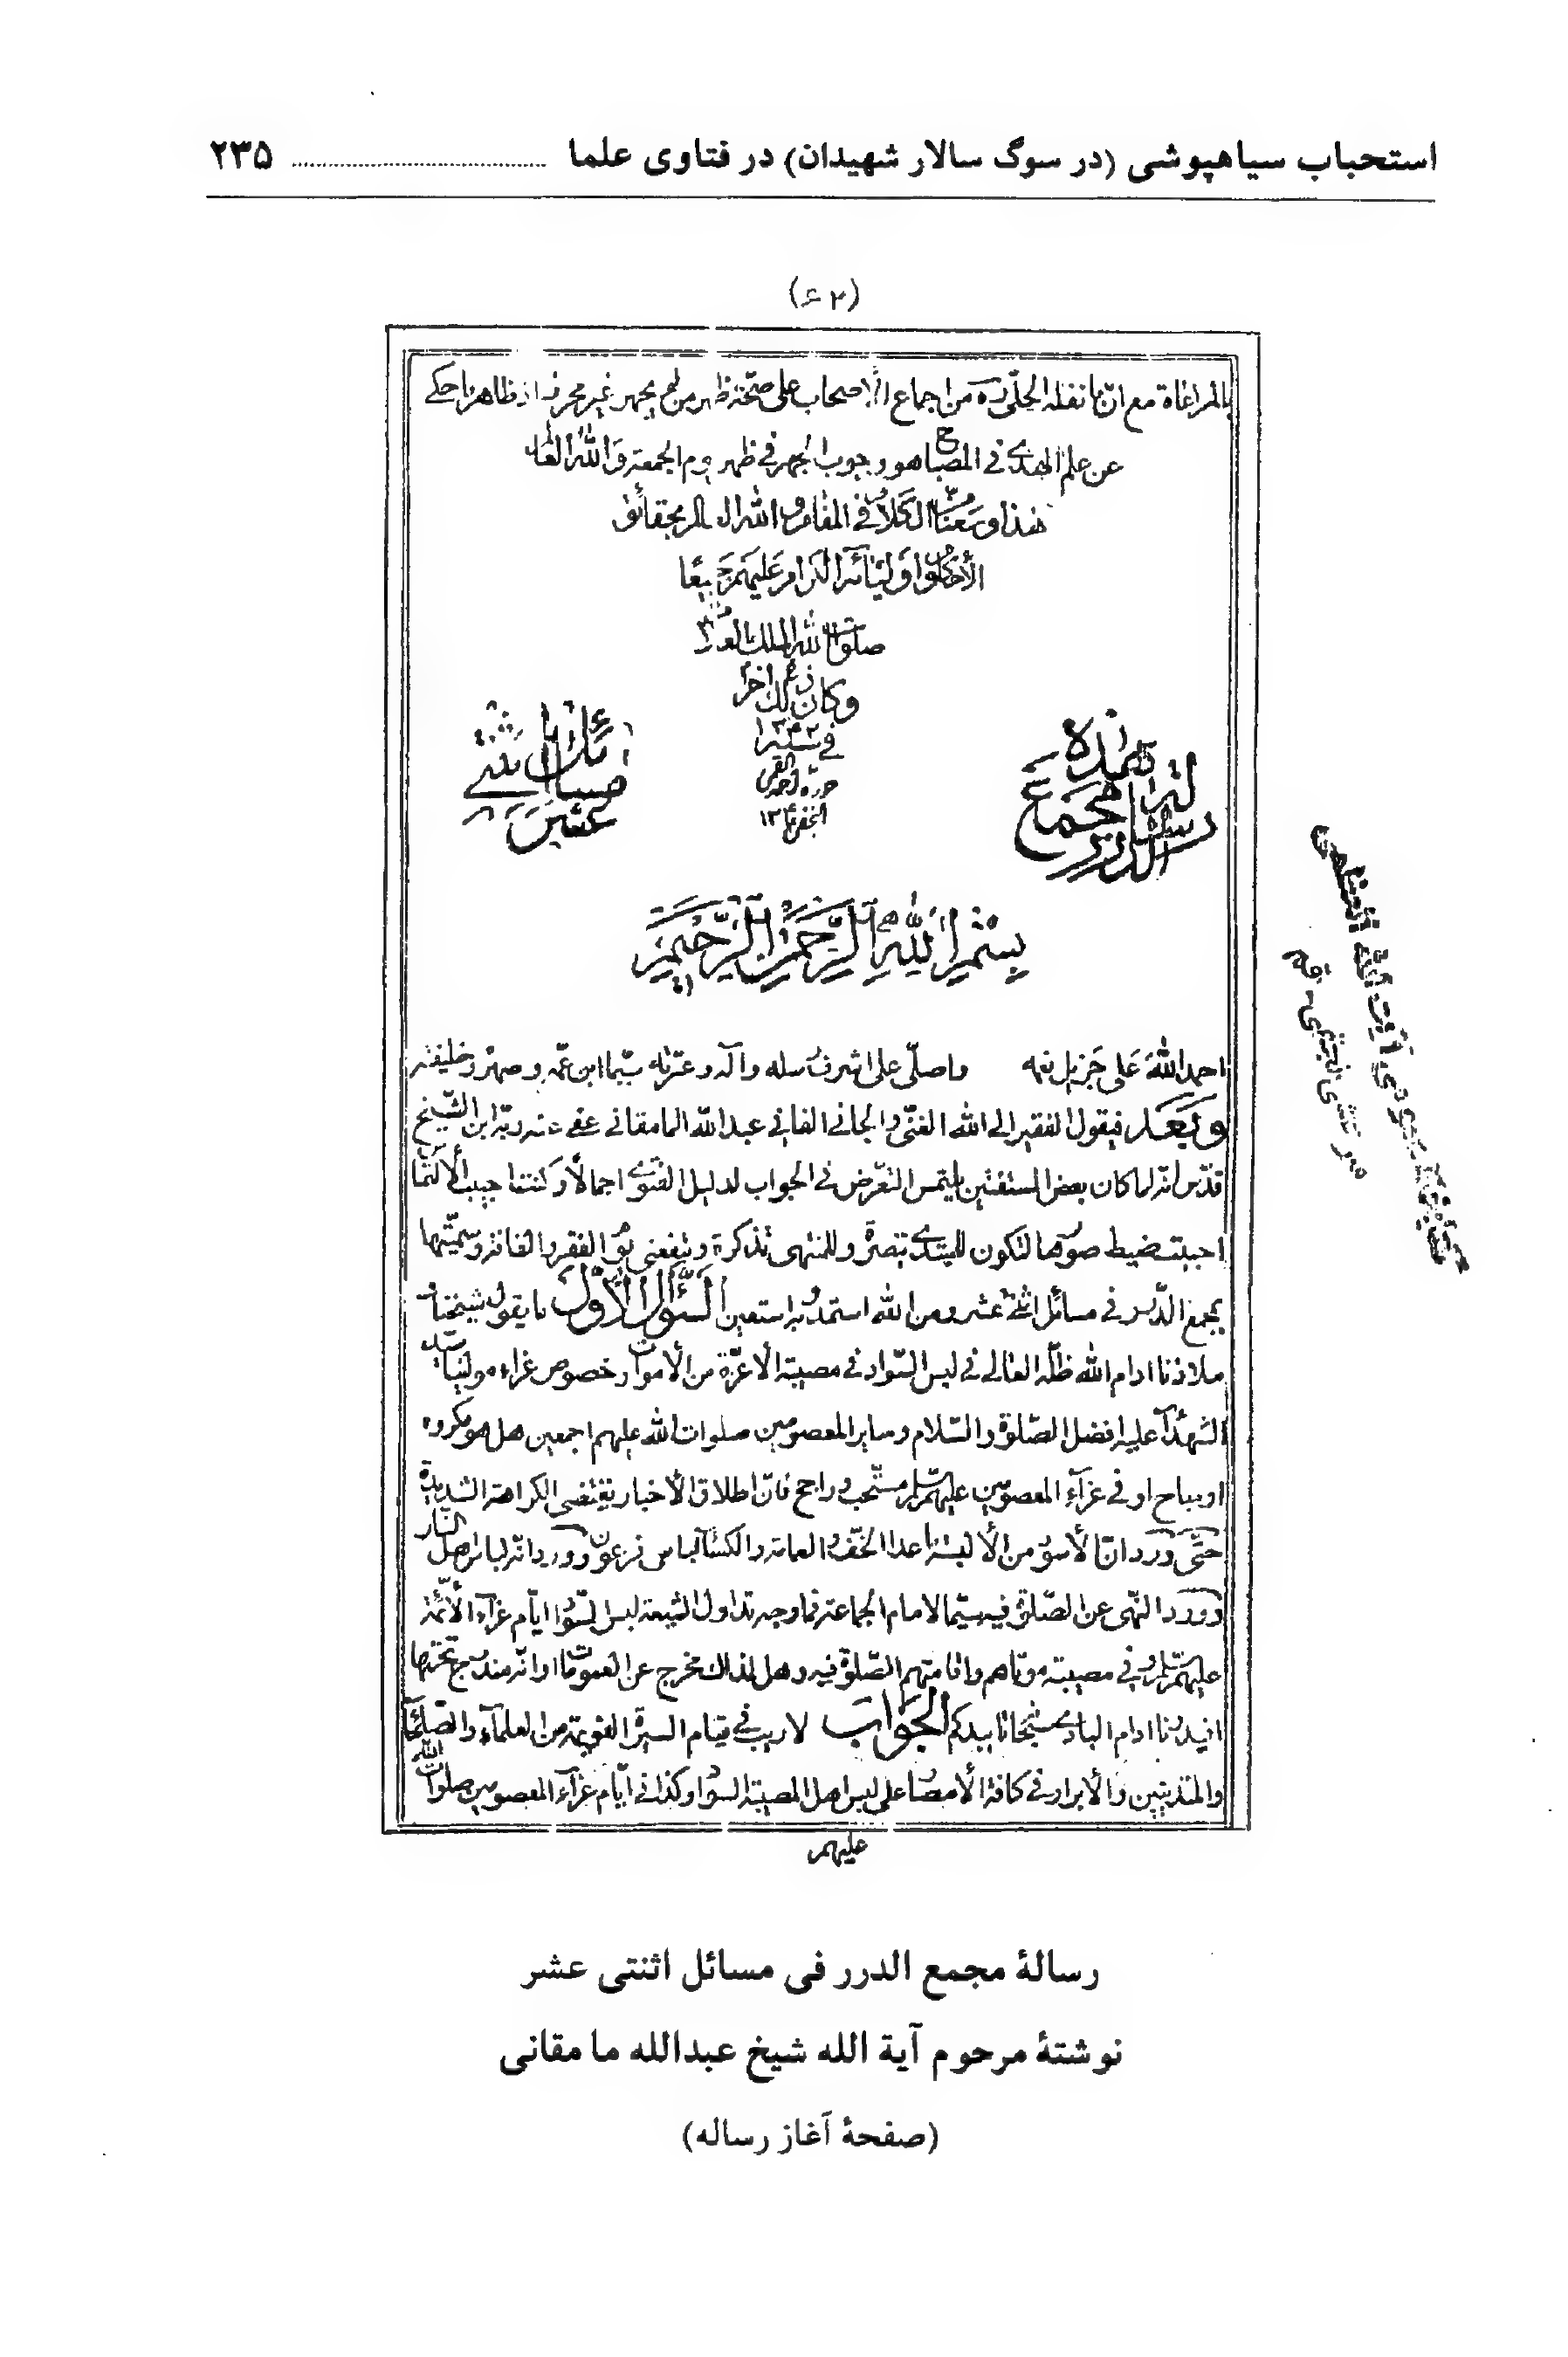 استحباب سیاهپوشی (در سوگ سالار شهیدان) در فتاوی علما ........ ۲۳۵
(۲۶)
بالمراعاة مع ان ما نقله الحلّی ره من اجماع الاصحاب على صحّة ظهر من لم يجهر غير محرز اذ ظاهر ما حكى
عن علم الهدى فى المصباح هو وجوب الجهر فى ظهر يوم الجمعة و الله العالم
هذا وسعنا الكلام فى المقام و الله العالم بحقائق
الأحكام و اوليائه الكرام عليهم جميعًا
صلوات الله الملك العلام
و كان ذلك اخر
فى سنة
حرره احمد
هذه رسالة مجمع الدرر
فى مسائل اثنتى عشر
بسم الله الرحمن الرحيم
احمد الله على جزيل نعمه و اصلّى على اشرف رسله و آله و عترته سيّما ابن عمّه و صهره و خليفته
و بعد فيقول الفقير الى الله الغنى و الجانى الفانى عبد الله المامقانى عفى عنه ربّه ابن الشيخ
قدّس انّه لما كان بعض المستفتين يلتمس التعرّض فى الجواب لدليل الفتوى اجمالًا و كنت اجيب الالتماس
احببت ضبط صورها لتكون للمبتدى تبصرة و للمنتهى تذكرة و تنفعنى يوم الفقر و الفاقة و سمّيتها
بمجمع الدّرر فى مسائل اثنتى عشر و من الله استمدّ و به استعين السّؤال الاوّل ما يقول شيخنا و
ملاذنا ادام الله ظلّه العالى فى لبس السّواد فى مصيبة الاعزّة من الاموات و خصوص عزاء مولينا سيّد
الشهداء عليه افضل الصّلوة و السّلام و ساير المعصومين صلوات الله عليهم اجمعين هل هو مكروه
او مباح او فى عزاء المعصومين عليهم السّلم مستحب و راجح فانّ اطلاق الأخبار يقتضى الكراهة الشديدة
حتّى ورد انّ الأسود من الألبسة ما عدا الخفّ و العمامة و الكساء لباس فرعون و ورد انّه لباس اهل النّار
و ورد النّهى عن الصّلوة فيه سيّما لامام الجماعة فما وجه تداول الشيعة لبس السّواد ايّام عزاء الأئمّة
عليهم السّلم و فى مصيبة موتاهم و اقامتهم الصّلوة فيه و هل لذلك مخرج عن العمومات او انّه مندرج تحتها
افيدونا ادام البارى سبحانه تاييدكم الجواب لا ريب فى قيام السيرة القويمة من العلماء و الصّلحاء
و المتديّنين و الأبرار فى كافة الأمصار على لبس اهل المصيبة السّواد و كذا فى ايّام عزاء المعصومين صلوات الله
عليهم
کتابخانه عمومی آیت الله العظمی
مرعشی نجفی - قم
رسالهٔ مجمع الدرر فی مسائل اثنتی عشر
نوشتهٔ مرحوم آیة الله شیخ عبدالله مامقانی
(صفحهٔ آغاز رساله)